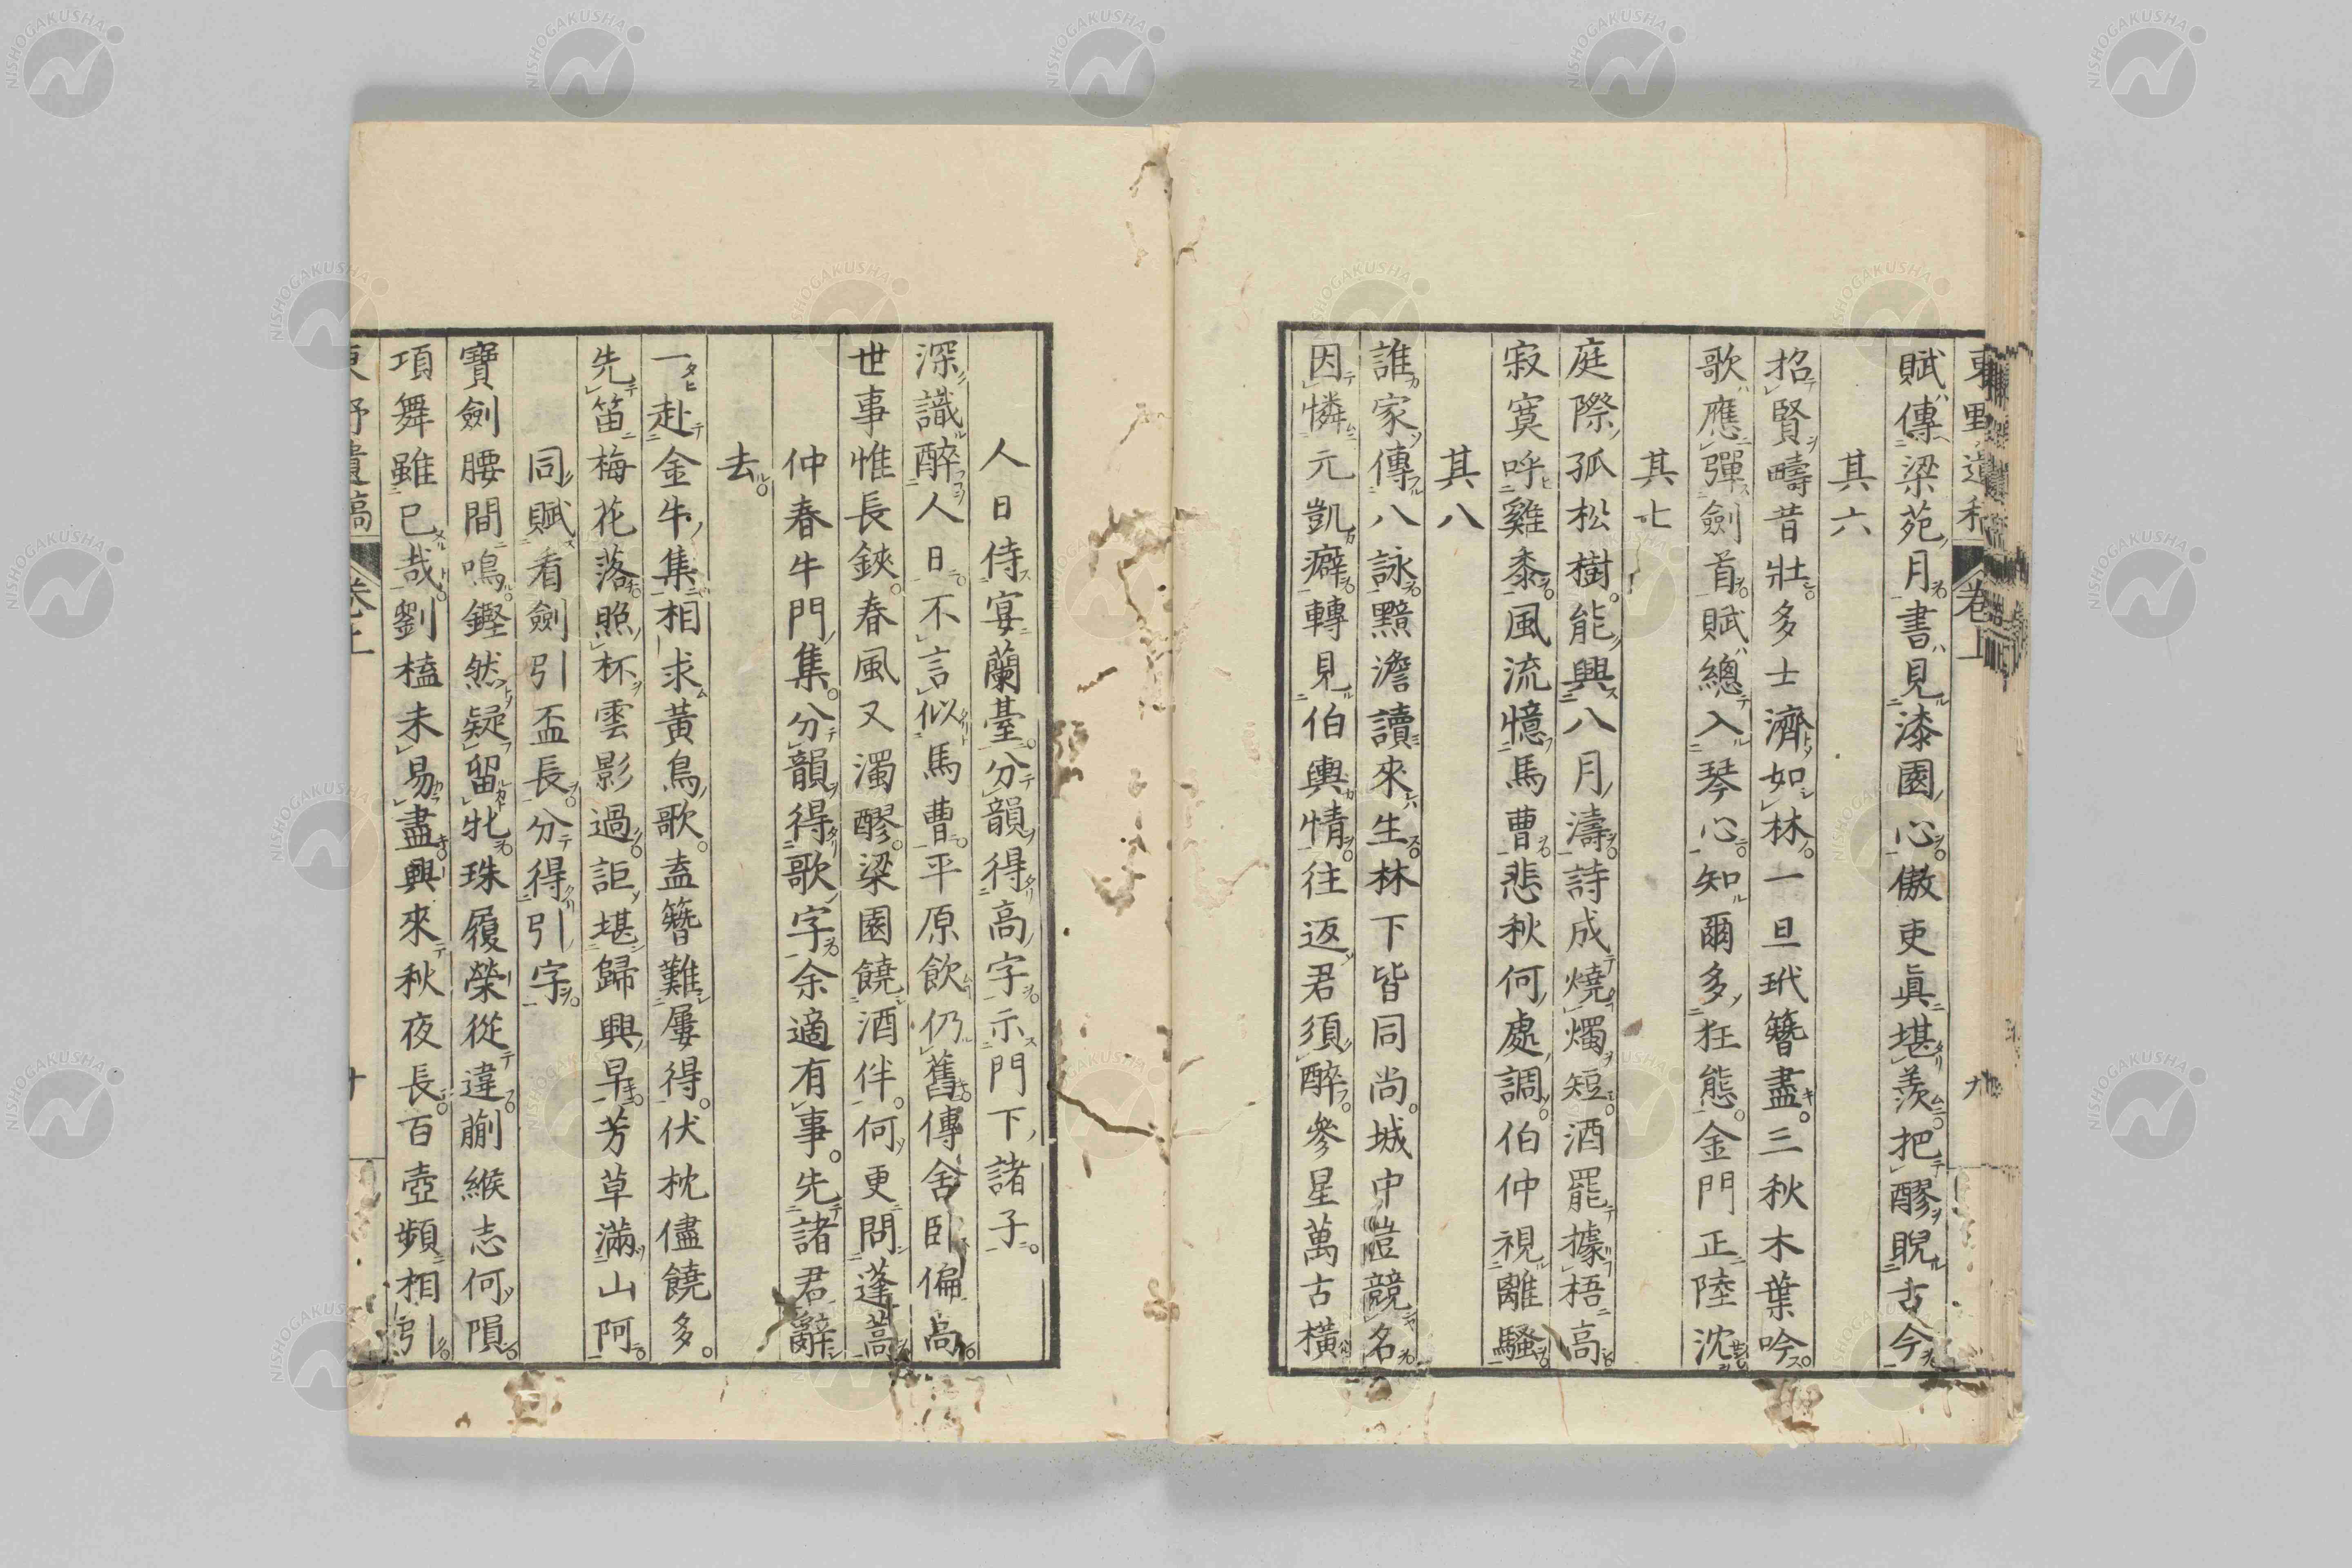 東野遺稿 卷上 九
賦傳梁苑月書見漆園心傲吏眞堪羨把醪睨古今
其六
招賢疇昔壯多士濟如林一旦玳簪盡三秋木葉吟
歌應彈劍首賦總入琴心知爾多狂態金門正陸沈
其七
庭際孤松樹能興八月濤詩成燒燭短酒罷據梧高
寂寞呼雞黍風流憶馬曹悲秋何處調伯仲視離騷
其八
誰家傳八詠黯澹讀來生林下皆同尚城中豈競名
因憐元凱癖轉見伯輿情往返君須醉參星萬古橫
人日侍宴蘭臺分韻得高字示門下諸子
深識醉人日不言似馬曹平原飲仍舊傳舍臥偏高
世事惟長鋏春風又濁醪梁園饒酒伴何更問蓬蒿
仲春牛門集分韻得歌字余適有事先諸君辭
去
一赴金牛集相求黃鳥歌盍簪難屢得伏枕儘饒多
先笛梅花落照杯雲影過詎堪歸興早芳草滿山阿
同賦看劍引盃長分得引字
寶劍腰間鳴鏗然疑留牝珠履榮從違蒯緱志何隕
項舞雖已哉劉榼未易盡興來秋夜長百壺頻相引
東野遺稿 卷上 十
NISHOGAKUSHA